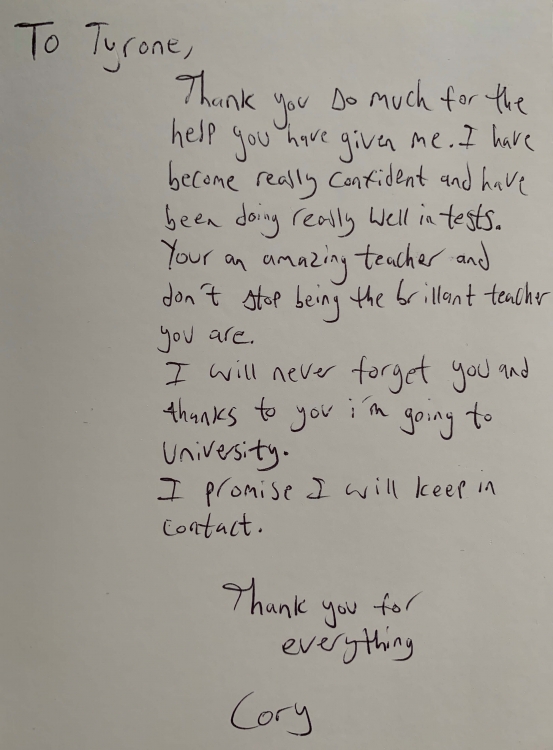 To Tyrone,
Thank you so much for the
help you have given me. I have
become really confident and have
been doing really well in tests.
Your an amazing teacher and
don't stop being the brillant teacher
you are.
I will never forget you and
thanks to you i'm going to
university.
I promise I will keep in
contact.
Thank you for
everything
Cory